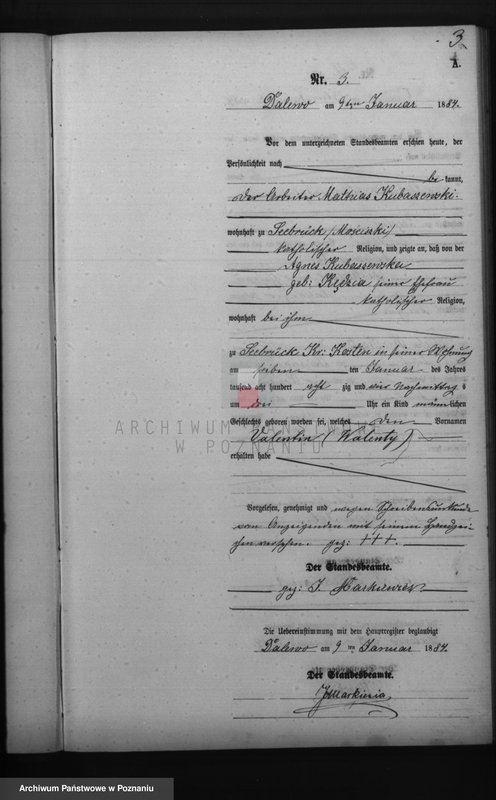 3
A.
Nr. 3.
Dalewo am 9ten Januar 1884.
Vor dem unterzeichneten Standesbeamten erschien heute, der
Persönlichkeit nach
be kannt,
der Arbeiter Mathias Kubaszewski
wohnhaft zu Seebrück /Mościszki/
katholischer Religion, und zeigte an, daß von der
Agnes Kubaszewska
geb: Kędzia seiner Ehefrau
katholischer Religion,
wohnhaft bei ihm
zu Seebrück Kr: Kosten in seiner Wohnung
am sieben ten Januar des Jahres
tausend acht hundert acht zig und vier Nachmittag s
um drei Uhr ein Kind männ lichen
Geschlechts geboren worden sei, welches den Vornamen
Valentin (Walenty)
erhalten habe
ARCHIWUM PAŃSTWOWE
W POZNANIU
Vorgelesen, genehmigt und wegen Schreibensunkunde
vom Anzeigenden mit seinem Handzei-
chen versehen. gez: +++.
Der Standesbeamte.
gez: J. Markiewicz
Die Uebereinstimmung mit dem Hauptregister beglaubigt
Dalewo am 9 ten Januar 1884.
Der Standesbeamte.
Archiwum Państwowe w Poznaniu